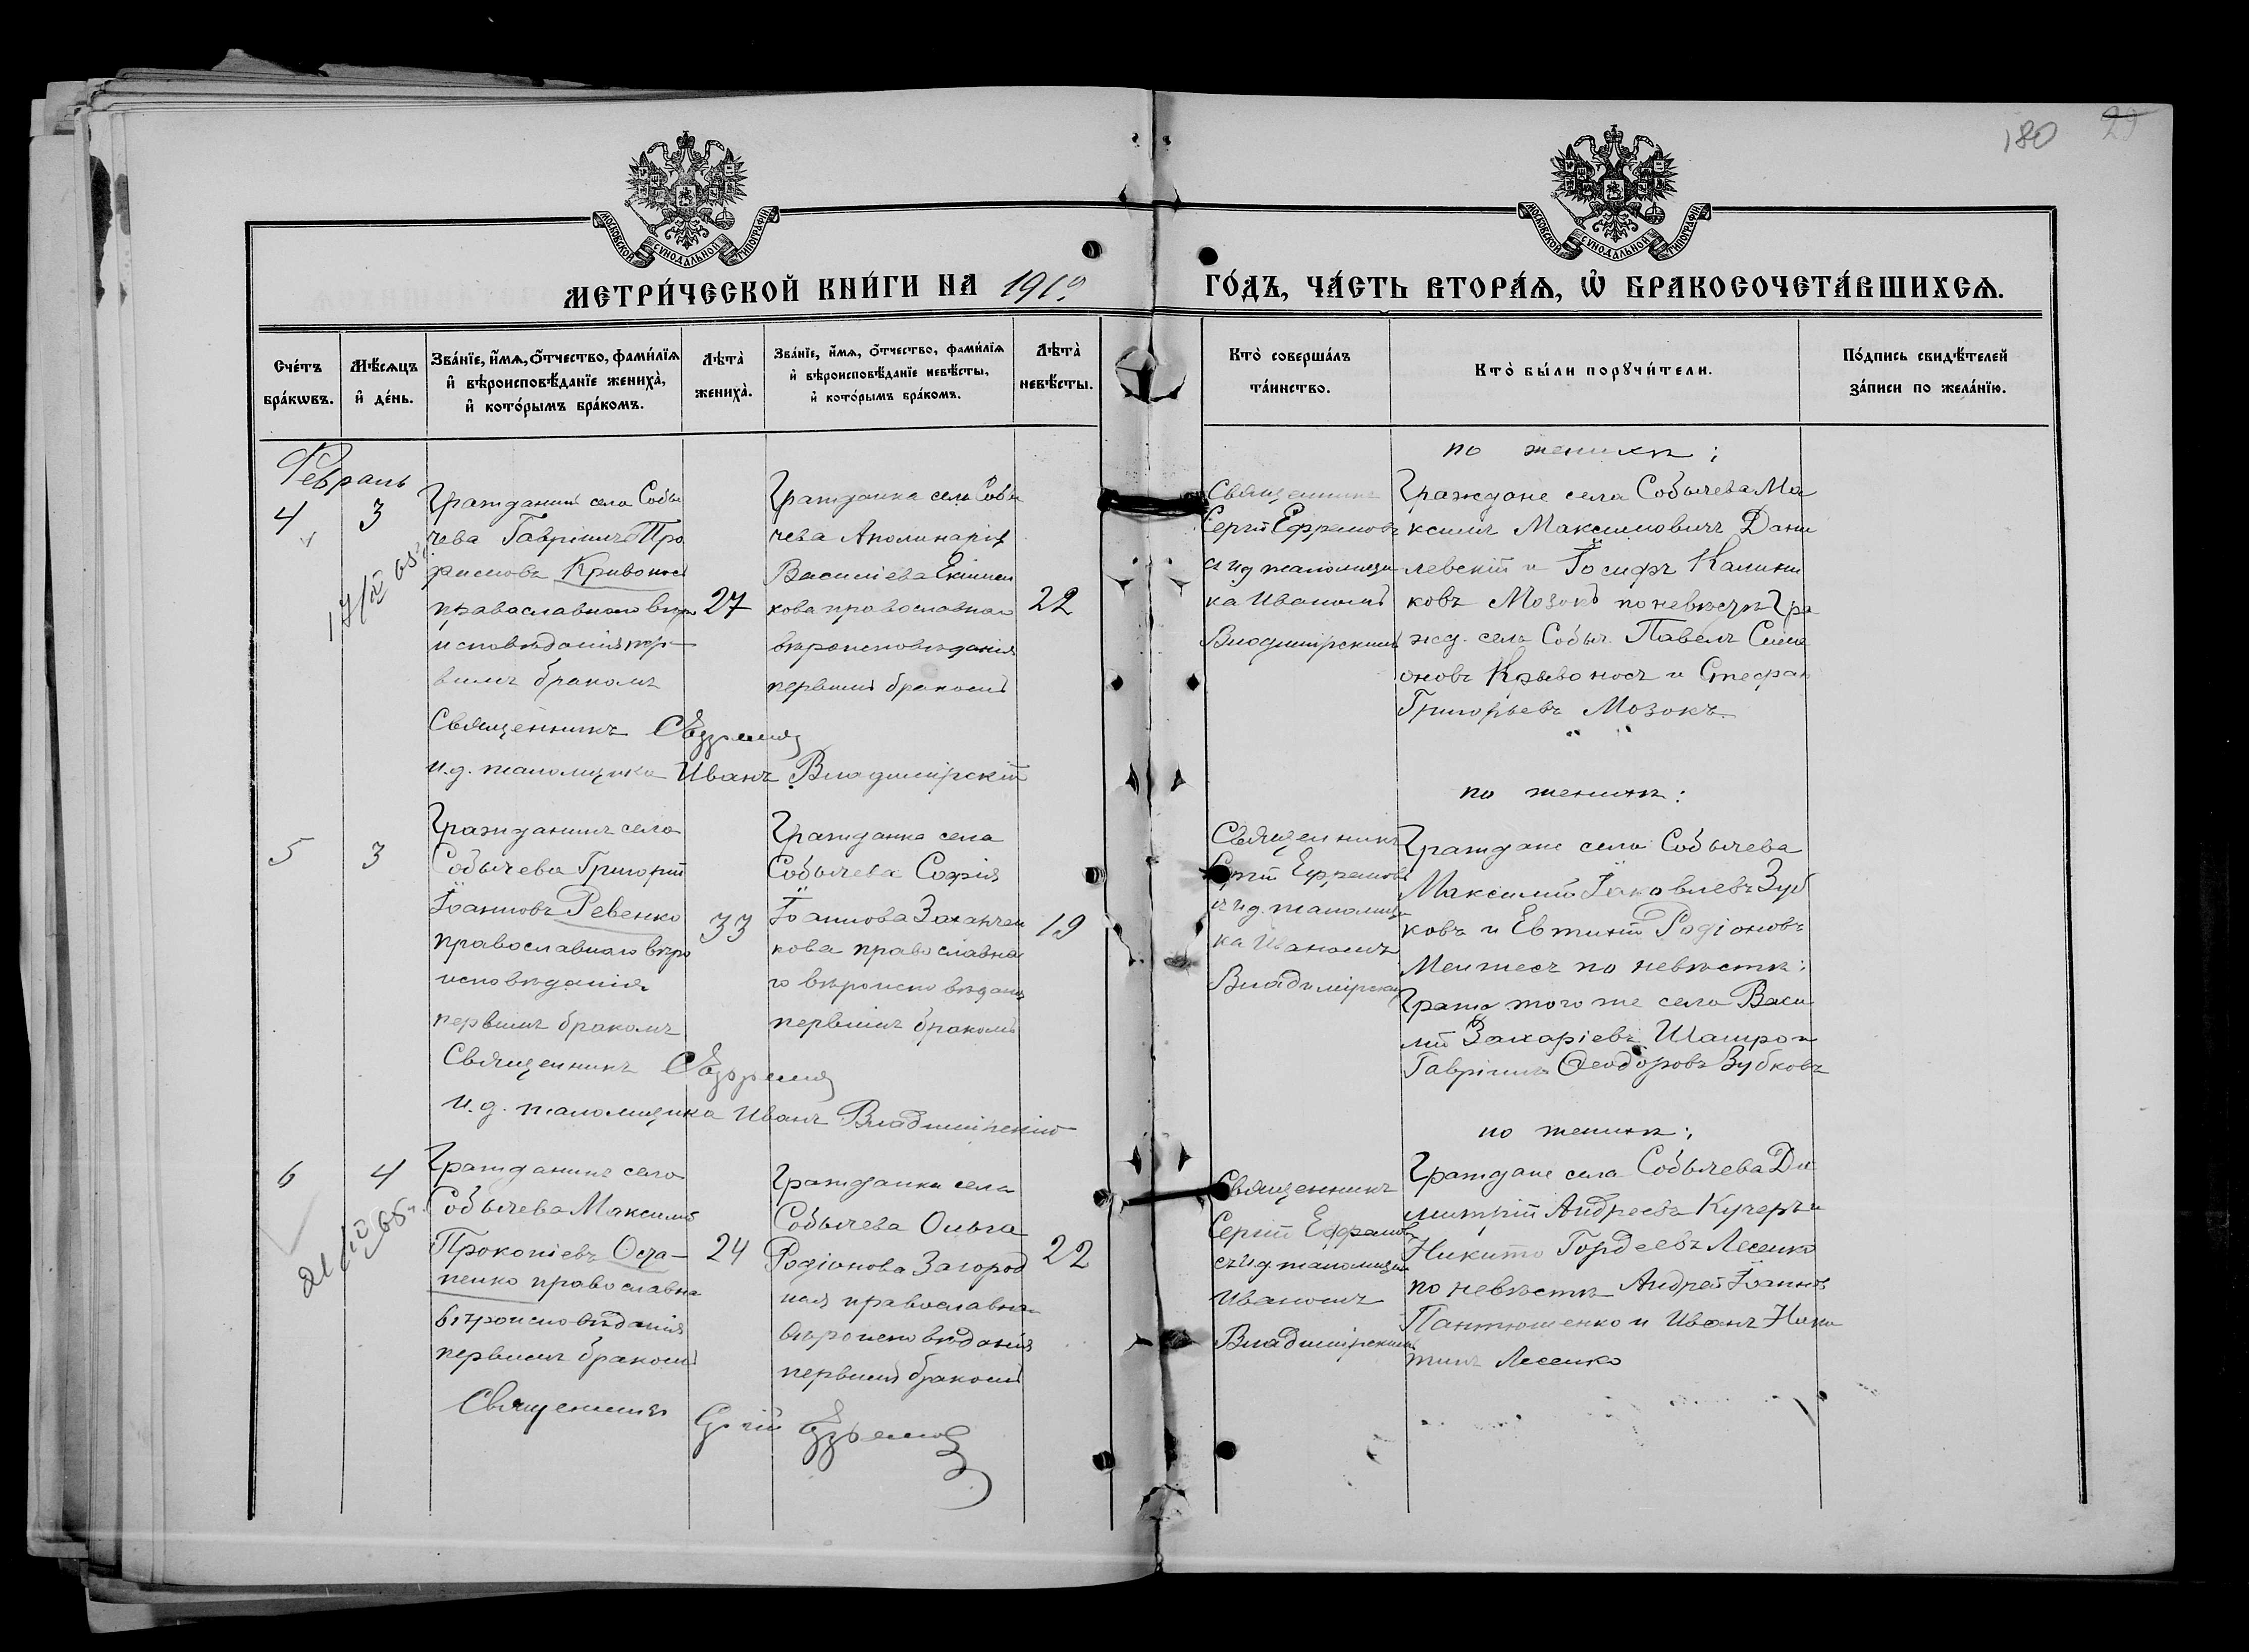 180 29
МОСКОВСКОЙ СУНОДАЛЬНОЙ ТИПОГРАФІИ
МОСКОВСКОЙ СУНОДАЛЬНОЙ ТИПОГРАФІИ
МЕТРИ́ЧЕСКОЙ КНИ́ГИ НА 1919
ГО́ДЪ, ЧА́СТЬ ВТОРА́Ѧ, Ѽ БРАКОСОЧЕТА́ВШИХСѦ.
Сче́тъ
бра́кѡвъ.
Мѣ́сѧцъ
и҆ де́нь.
Зва́нїе, и҆́мѧ, ѻ҆́тчество, фами́лїѧ
и҆ вѣроисповѣ́данїе жениха̀,
и҆ кото́рымъ бра́комъ.
Лѣта̀
жениха̀.
Зва́нїе, и҆́мѧ, ѻ҆́тчество, фами́лїѧ
и҆ вѣроисповѣ́данїе невѣ́сты,
и҆ кото́рымъ бра́комъ.
Лѣта̀
невѣ́сты.
Кто̀ соверша́лъ
та́инство.
Кто̀ бы́ли порꙋчи́тели.
По́дпись свидѣ́телей
за́писи по жела́нїю.
Февраль
4
3
17/IV 65
Гражданинъ села Собы
чева Гавріилъ Про
Кривонос
православнаго вѣро
исповѣданія пер
вымъ бракомъ
27
Гражданка села Собы
чева Аполинарія
Васильева
кова православнаго
вѣроисповѣданія
первымъ бракомъ
22
Священникъ
и.д. псаломщика Иванъ Владимірскій
Священникъ
Сергій Ефремовъ
с и.д. псаломщи
ка Иваномъ
Владимірскимъ
по женихѣ:
Граждане села Собычева Ма
ксимъ Максимовичъ Дани
левскій и Іосифъ Калини
ковъ Мозокъ по невѣстѣ Гра
жд. села Собыч. Павелъ Симе
оновъ Крывоносъ и Стефан
Григорьевъ Мозокъ.
5
3
Гражданинъ села
Собычева Григорій
Іоанновъ Ревенко
православнаго вѣро
исповѣданія
первымъ бракомъ
33
Гражданка села
Собычева Софія
Іоаннова Захарчен
кова православна
го вѣроисповѣданія
первымъ бракомъ
19
Священникъ
и.д. псаломщика Иванъ Владимірскій
Священникъ
Сергій Ефремовъ
с и.д. псаломщи
ка Иваномъ
Владимірским
по женихѣ:
Граждане села Собычева
Максимъ Іаковлевъ Зуб
ковъ и Евтихій Родіоновъ
по невѣстѣ:
Гражд того же села Васи
лій Захаріевъ и
Гавріилъ Ѳеодоровъ Зубковъ
6
4
21/IV 65 г.
Гражданинъ села
Собычева Максимъ
Прокопіевъ Оста-
пенко православна
вѣроисповѣданія
первымъ бракомъ
24
Гражданка села
Собычева Ольга
Родіонова Загород
няя православна
вѣроисповѣданія
первымъ бракомъ
22
Священникъ Сергій Ефремовъ
Священникъ
Сергій Ефремовъ
съ и.д. псаломщик
Иваномъ
Владимірскимъ
по женихѣ:
Граждане села Собычева Ди
митрій Андреевъ Кучеръ и
Никита Гордеевъ Лесенко
по невѣстѣ Андрей Іоаннов
Пантюшенко и Иванъ Ники
тинъ Лесенко